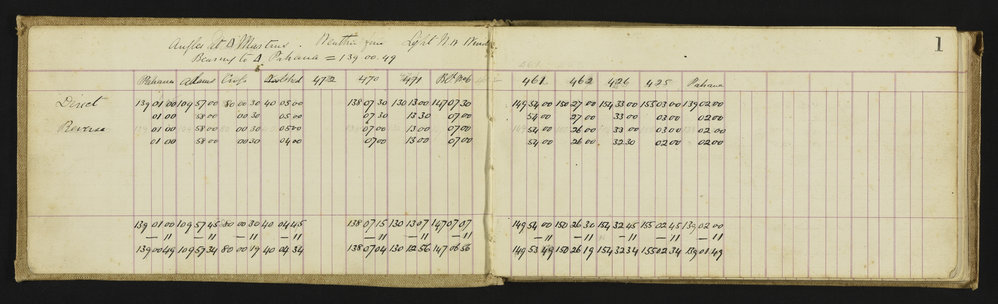 1
Angles at Δ Mustons. Weather fine Light N.W. Wind
Bearing to Δ Pahaua = 139.00.49
Pahaua Adams Cross 472 470 471 461. 462 426 425 Pahaua
Direct 139 01 00 109 57 00 80 00 30 40 05 00 138 07 30 130 13 00 147 07 30 149 54 00 150 27 00 154 33 00 155 03 00 139 02 00
01 00 58 00 00 30 05 00 07 30 13 30 07 00 54 00 27 00 33 00 03 00 02 00
Reverse 01 00 58 00 00 30 05 00 07 00 13 00 07 00 54 00 26 00 33 00 03 00 02 00
01 00 58 00 00 30 04 00 07 00 13 00 07 00 54 00 26 00 32 30 02 00 02 00
139 01 00 109 57 45 80 00 30 40 04 45 138 07 15 130 13 07 147 07 07 149 54 00 150 26 30 154 32 45 155 02 45 139 02 00
— 11 — 11 — 11 — 11 — 11 — 11 — 11 — 11 — 11 — 11 — 11 — 11
139 00 49 109 57 34 80 00 19 40 04 34 138 07 04 130 12 56 147 06 56 149 53 49 150 26 19 154 32 34 155 02 34 139 01 49